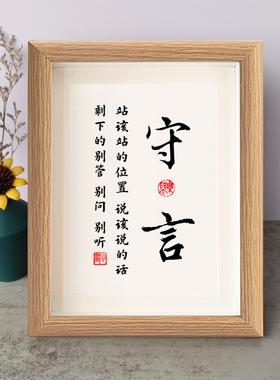 守言
站该站的位置 说该说的话
剩下的别管 别问 别听